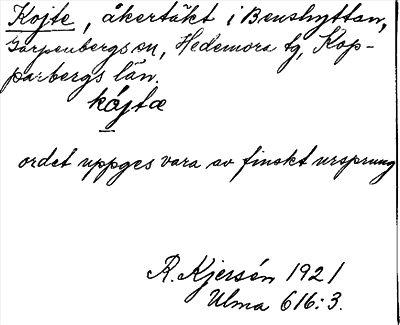 Kojte, åkertäkt i Benshyttan,
Garpenbergs sn, Hedemora tg, Kop-
parbergs län.
kåjtæ
ordet uppges vara av finskt ursprung
R. Kjersén 1921
Ulma 616:3.